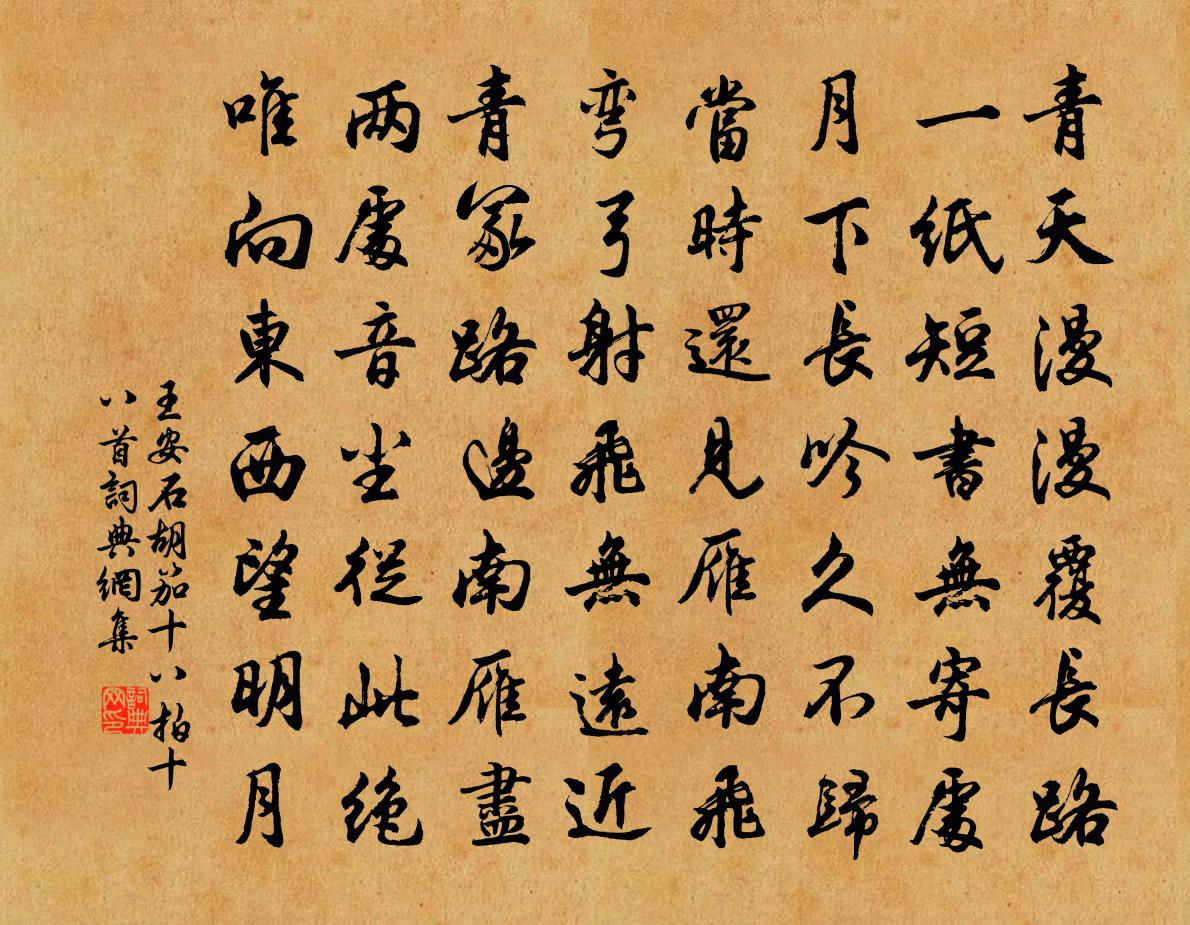 青天漫漫覆長路
一紙短書無寄處
月下長吟久不歸
當時還見雁南飛
彎弓射飛無遠近
青冢路邊南雁盡
兩處音尘從此絶
唯向東西望明月
王安石胡笳十八拍十
八首詞典網集
詞典
网印